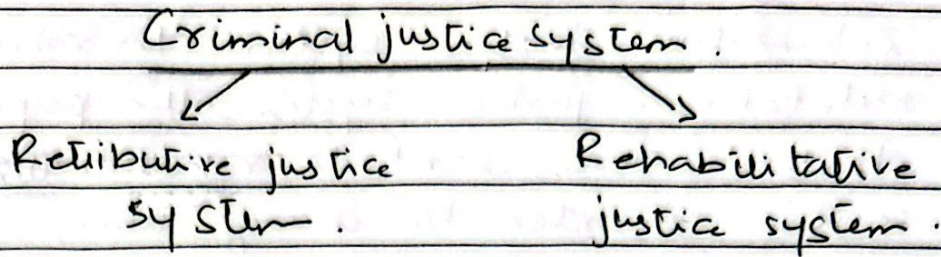 Criminal justice system.
Retributive justice system.
Rehabilitative justice system.